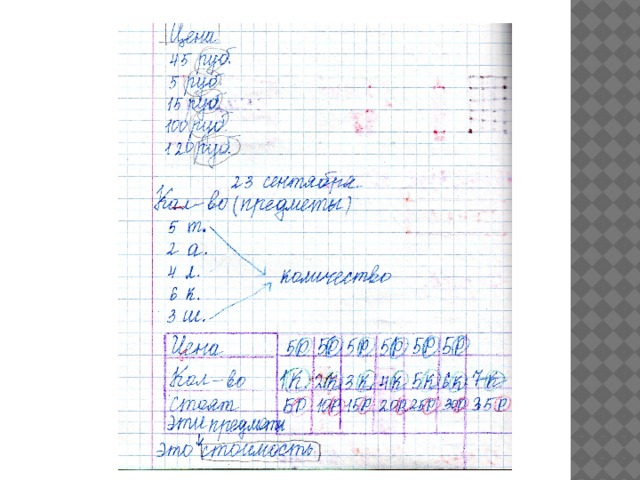 Цена
45 руб.
5 руб
15 руб
100 руб
120 руб.
23 сентября.
Кол-во (предметы)
5 т.
2 а.
4 л.
6 к.
3 ш.
количество
Цена 5р 5р 5р 5р 5р 5р
Кол-во 1к. 2к 3к 4к 5к 6к 7к
Стоят 5р 10р 15р 20р 25р 30р 35р
эти предметы
это стоимость